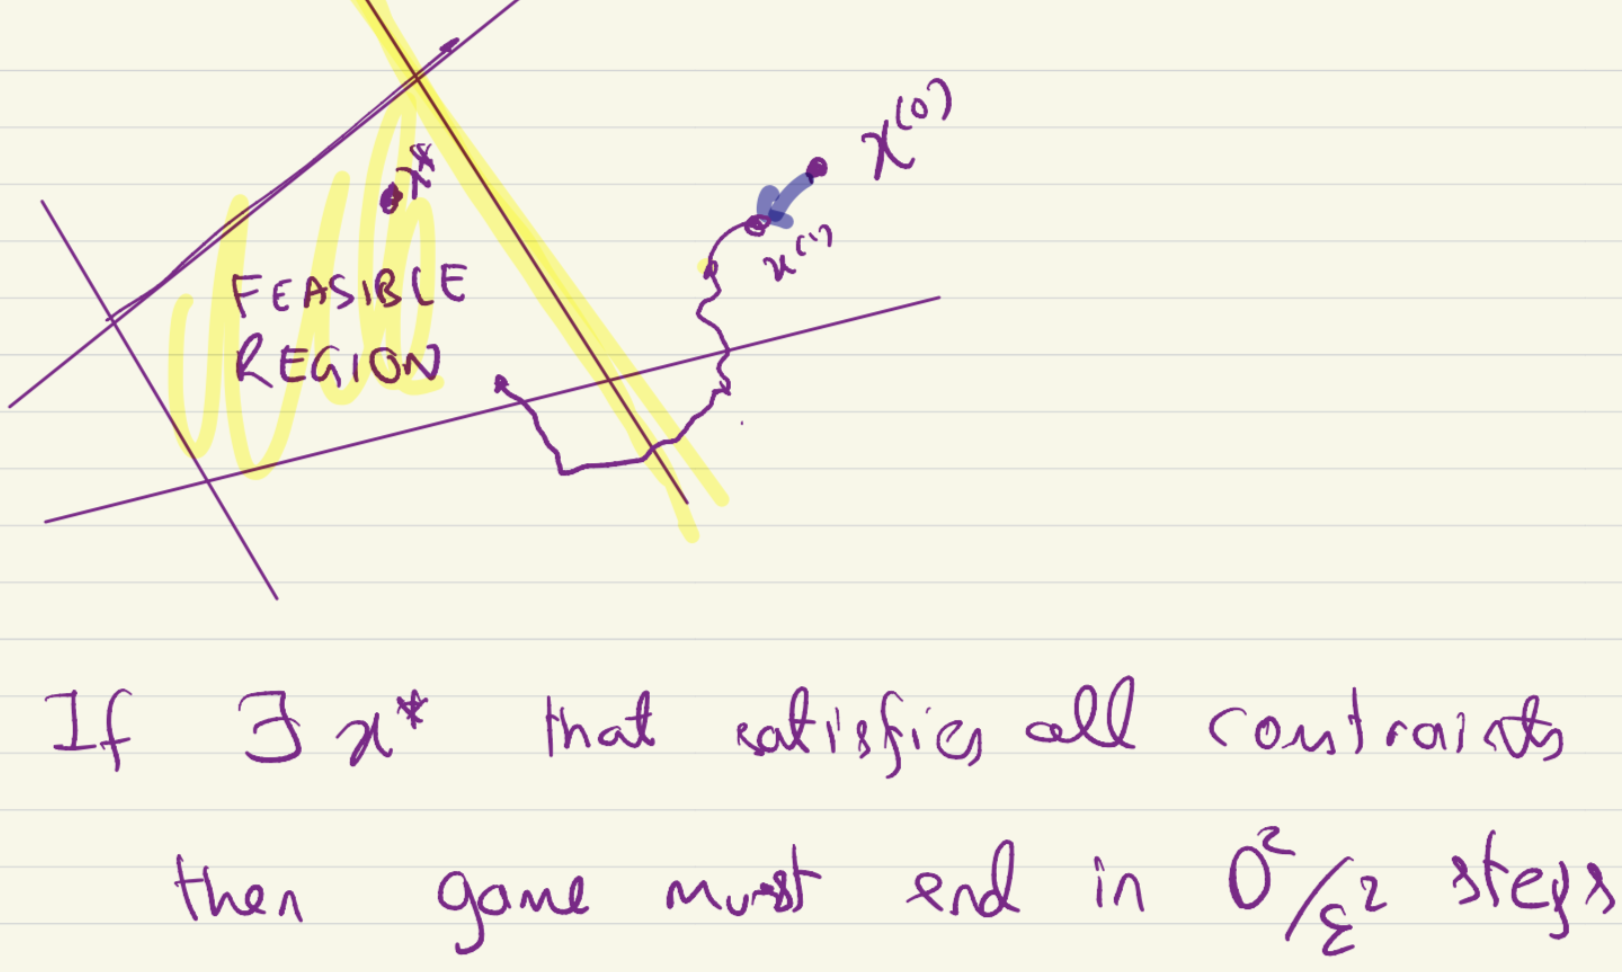 x^(0)
x*
x^(1)
FEASIBLE
REGION
If ∃ x* that satisfies all constraints
then game must end in D²/ε² steps